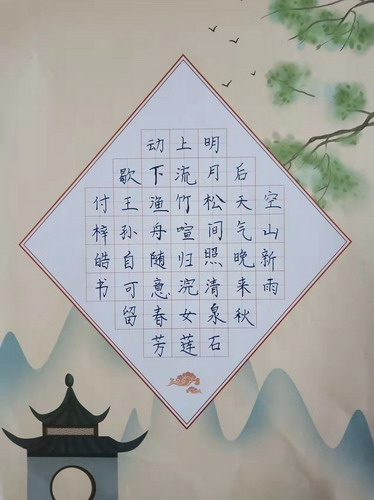 空山新雨
后天气晚来秋
明月松间照清泉石
上流竹喧归浣女莲
动下渔舟随意春芳
歇王孙自可留
付梓皓书